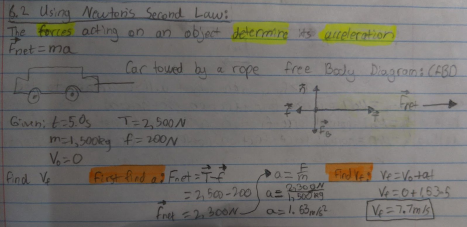 6.2 Using Newton's Second Law:
The forces acting on an object determine its acceleration
Fnet = ma
Car towed by a rope
free Body Diagram: (FBD
n
f
T
Fg
Fnet
Given: t=5.0s T=2,500N
m=1,500kg f=200N
V₀=0
Find Vf
First find a: Fnet=T-f
=2,500-200
Fnet = 2,300N
a = F/m
a = 2,300N/1,500kg
a=1.53m/s²
Find Vf: Vf=V₀+at
Vf=0+(53·5
Vf=7.7m/s